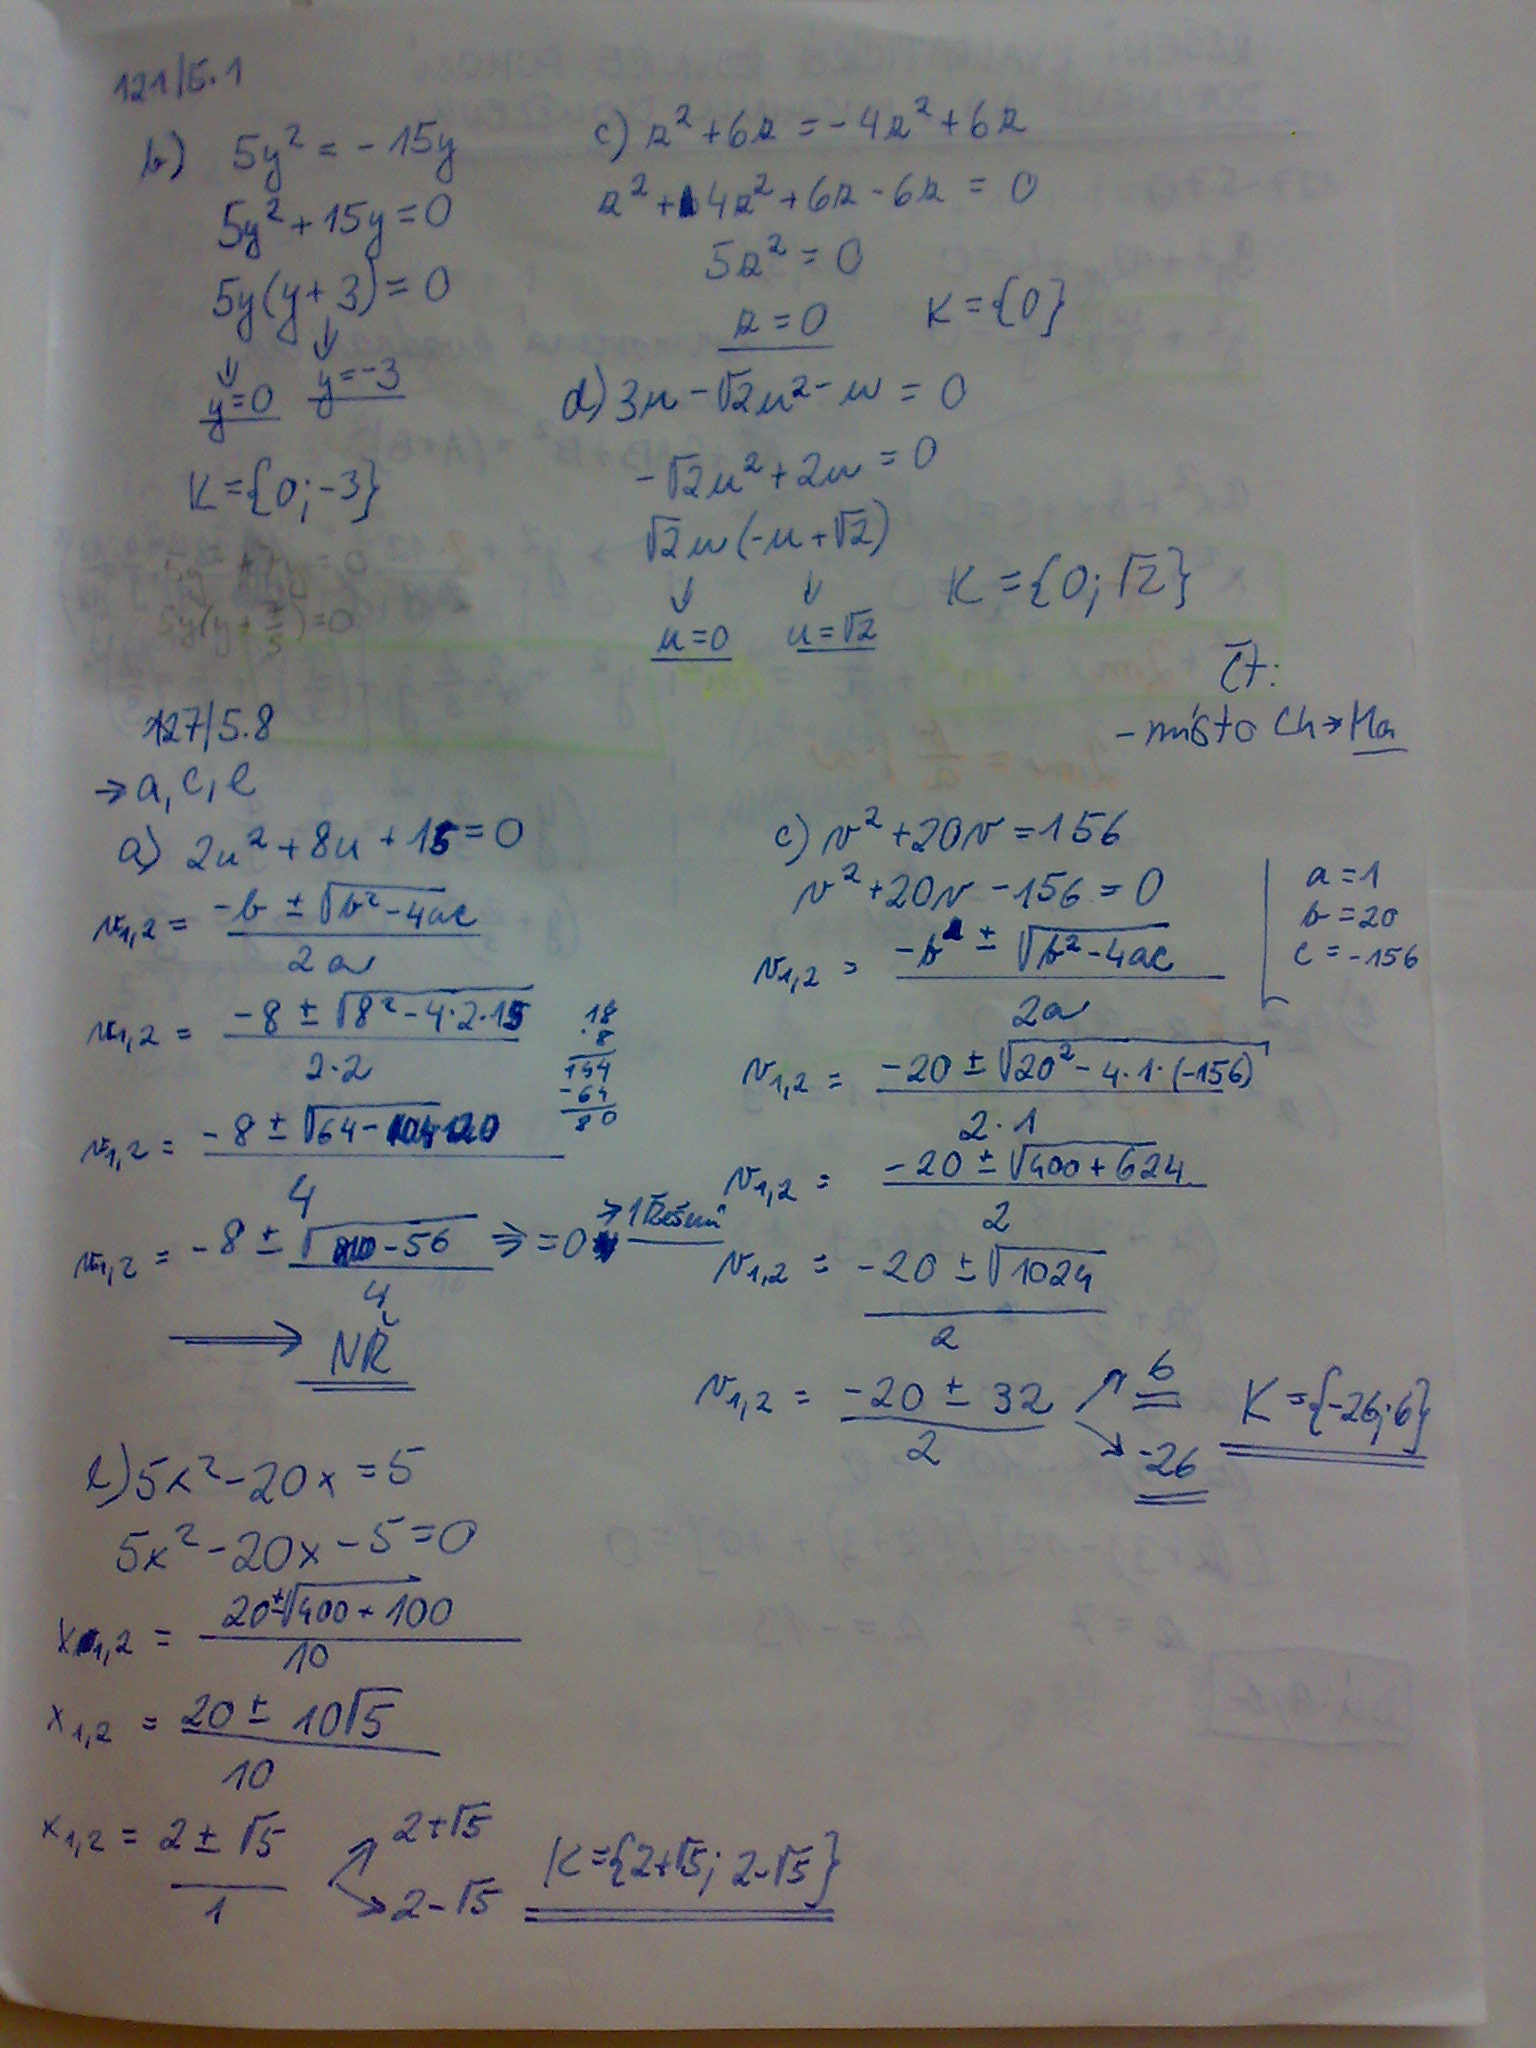 121/5.1
b) 5y² = -15y
5y² + 15y = 0
5y(y+3) = 0
y=0 y=-3
K={0;-3}
c) z² + 6z = -4z² + 6z
z² + 4z² + 6z - 6z = 0
5z² = 0
z = 0 K={0}
d) 3u - √2u² - u = 0
-√2u² + 2u = 0
√2u(-u+√2)
u=0 u=√2
K={0;√2}
5y(y+7/5)=0
Čt:
- místo Ch → Ma
127/5.8
→ a, c, e
a) 2u² + 8u + 15 = 0
v1,2 = -b ± √b²-4ac
2a
v1,2 = -8 ± √8²-4·2·15
2·2
18
·8
144
-64
80
v1,2 = -8 ± √64-120
4
v1,2 = -8 ± √-56 ⇒ =0 → 1 řešení
4
⟹ NŘ
c) v² + 20v = 156
v² + 20v - 156 = 0
a = 1
b = 20
c = -156
v1,2 = -b ± √b²-4ac
2a
v1,2 = -20 ± √20²-4·1·(-156)
2·1
v1,2 = -20 ± √400+624
2
v1,2 = -20 ± √1024
2
v1,2 = -20 ± 32
2
6
-26
K={-26;6}
e) 5x² - 20x = 5
5x² - 20x - 5 = 0
x1,2 = 20±√400+100
10
x1,2 = 20 ± 10√5
10
x1,2 = 2 ± √5
1
2+√5
2-√5
K={2+√5; 2-√5}